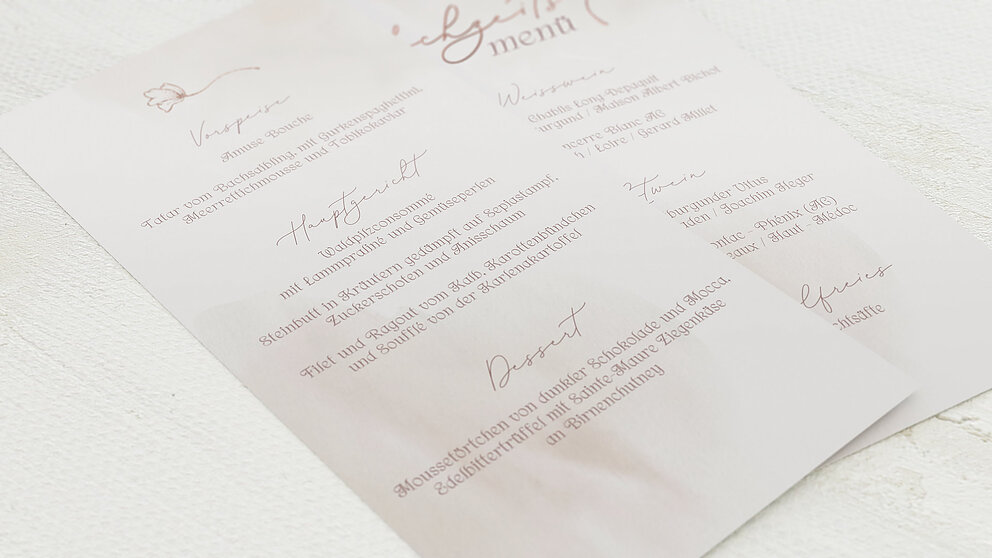 Vorspeise
Amuse Bouche
Tatar vom Bachsaibling, mit Gurkenspaghettini,
Meerrettichmousse und Tobikokaviar
Hauptgericht
Waldpilzconsommé
mit Lammpraline und Gemüseperlen
Steinbutt in Kräutern gedämpft auf Sepiastampf,
Zuckerschoten und Anisschaum
Filet und Ragout vom Kalb, Karottenbündchen
und Soufflé von der Kartenakartoffel
Dessert
Moussetörtchen von dunkler Schokolade und Mocca,
Edelbittertrüffel mit Sainte-Maure Ziegenkäse
an Birnenchutney
chzeits
menü
Weisswein
Chablis Long-Depaquit
urgund / Maison Albert Bichot
ncerre Blanc AC
/ Loire / Gerard Millet
twein
burgunder Vitus
den / Joachim Heger
ontac - Phénix (AC)
eaux / Haut - Médoc
lfreies
chtsäfte